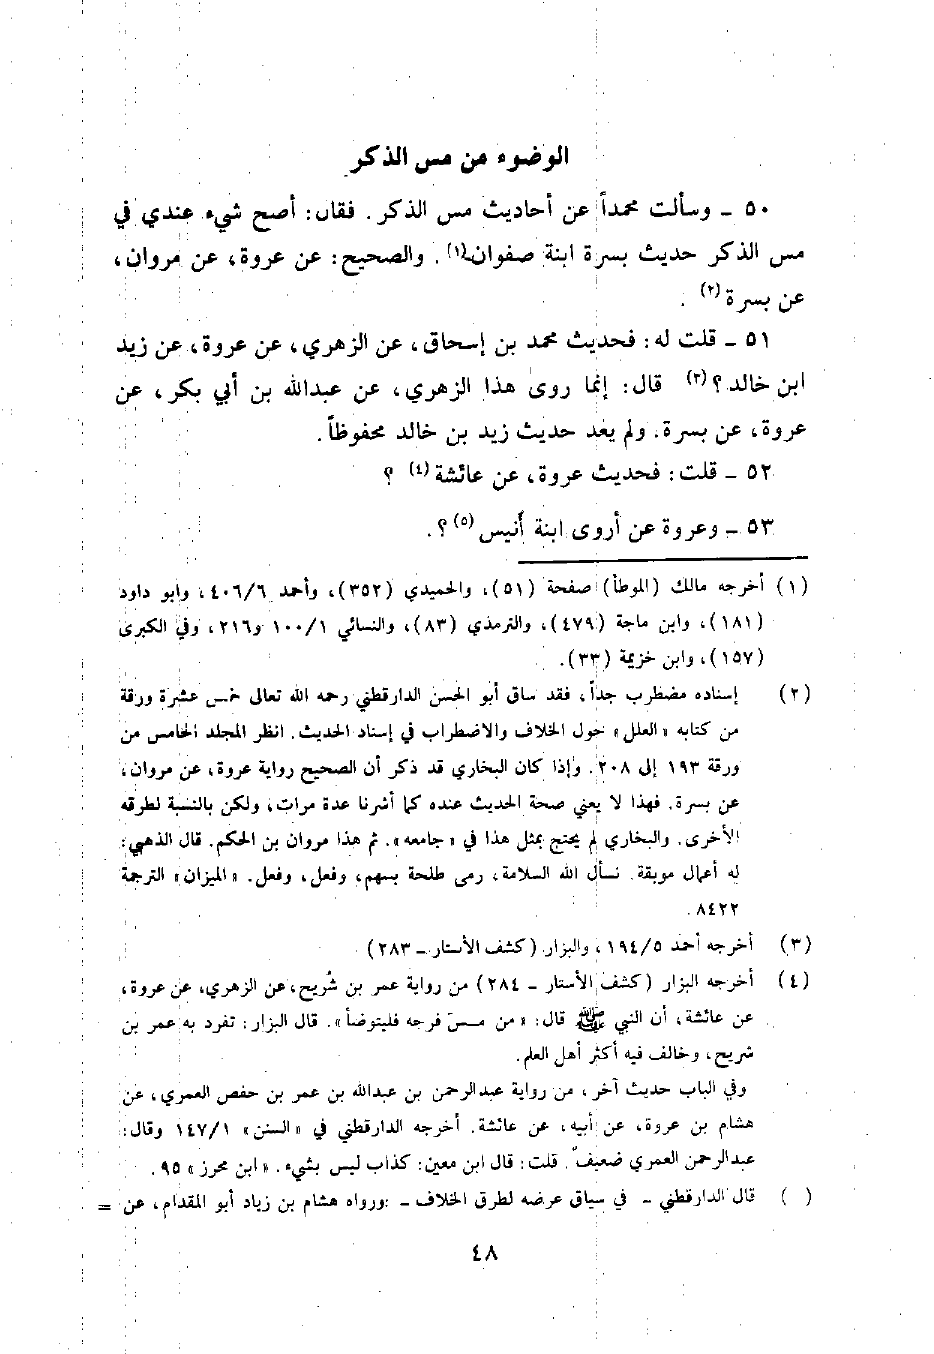 الوضوء من مس الذكر
٥٠ ـ وسألت محمداً عن أحاديث مس الذكر. فقال: أصح شيء عندي في
مس الذكر حديث بسرة ابنة صفوان(١). والصحيح: عن عروة، عن مروان،
عن بسرة(٢).
٥١ ـ قلت له: فحديث محمد بن إسحاق، عن الزهري، عن عروة، عن زيد
ابن خالد؟(٣) قال: إنما روى هذا الزهري، عن عبدالله بن أبي بكر، عن
عروة، عن بسرة. ولم يعد حديث زيد بن خالد محفوظاً.
٥٢ ـ قلت: فحديث عروة، عن عائشة(٤) ؟
٥٣ ـ وعروة عن أروى ابنة أنيس(٥)؟.
(١) أخرجه مالك (الموطأ) صفحة (٥١)، والحميدي (٣٥٢)، وأحمد ٤٠٦/٦، وابو داود
(١٨١)، وابن ماجة (٤٧٩)، والترمذي (٨٣)، والنسائي ١٠٠/١ و٢١٦، وفي الكبرى
(١٥٧)، وابن خزيمة (٣٣).
(٢) إسناده مضطرب جداً، فقد ساق أبو الحسن الدارقطني رحمه الله تعالى خمس عشرة ورقة
من كتابه «العلل» حول الخلاف والاضطراب في إسناد الحديث. انظر المجلد الخامس من
ورقة ١٩٣ إلى ٢٠٨. وإذا كان البخاري قد ذكر أن الصحيح رواية عروة، عن مروان،
عن بسرة. فهذا لا يعني صحة الحديث عنده كما أشرنا عدة مرات، ولكن بالنسبة لطرقه
الأخرى. والبخاري لم يحتج بمثل هذا في «جامعه». ثم هذا مروان بن الحكم. قال الذهبي:
له أعمال موبقة. نسأل الله السلامة، رمى طلحة بسهم، وفعل، وفعل. «الميزان» الترجمة
٨٤٢٢.
(٣) أخرجه أحمد ١٩٤/٥، والبزار (كشف الأستار ـ ٢٨٣)
(٤) أخرجه البزار (كشف الأستار ـ ٢٨٤) من رواية عمر بن شُريح، عن الزهري، عن عروة،
عن عائشة، أن النبي ﷺ قال: «من مسَ فرجه فليتوضأ». قال البزار: تفرد به عمر بن
شريح، وخالف فيه أكثر أهل العلم.
وفي الباب حديث آخر، من رواية عبدالرحمن بن عبدالله بن عمر بن حفص العمري، عن
هشام بن عروة، عن أبيه، عن عائشة. أخرجه الدارقطني في «السنن» ١٤٧/١ وقال:
عبدالرحمن العمري ضعيف. قلت: قال ابن معين: كذاب ليس بشيء. «ابن محرز» ٩٥.
( ) قال الدارقطني ـ في سياق عرضه لطرق الخلاف ـ :ورواه هشام بن زياد أبو المقدام، عن =
٤٨